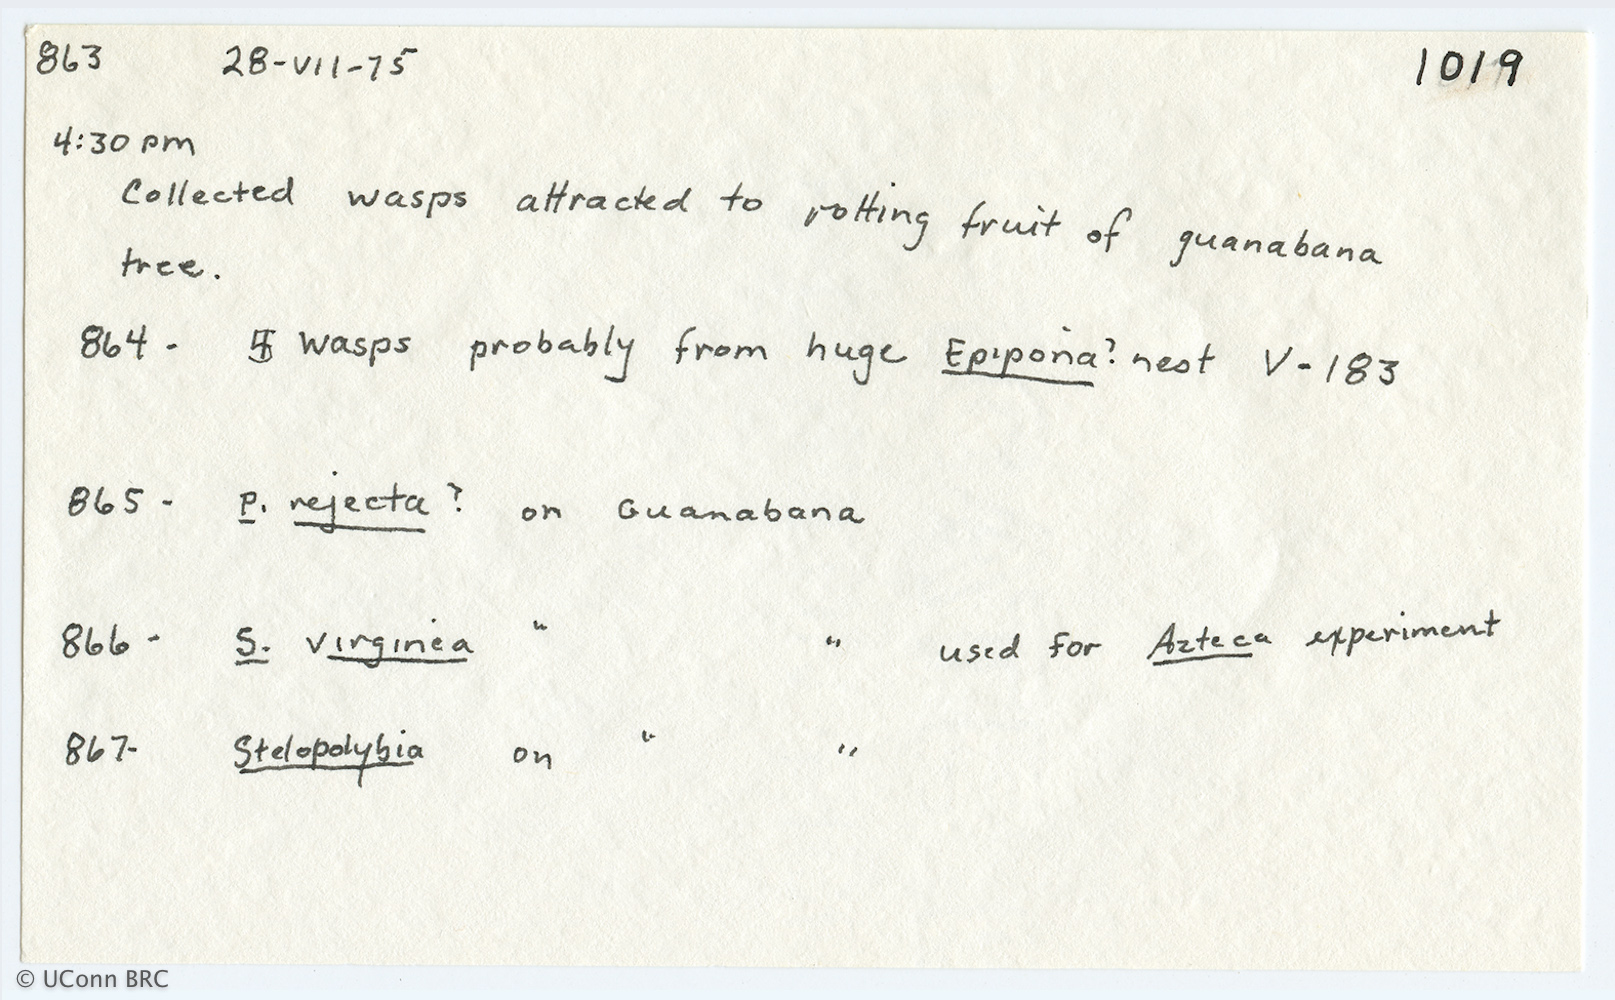 863 28-VII-75 1019
4:30 pm
Collected wasps attracted to rotting fruit of guanabana
tree.
864 - wasps probably from huge Epipona? nest V-183
865 - P. rejecta? on Guanabana
866 - S. virginea " " used for Azteca experiment
867- Stelopolybia on " "
© UConn BRC